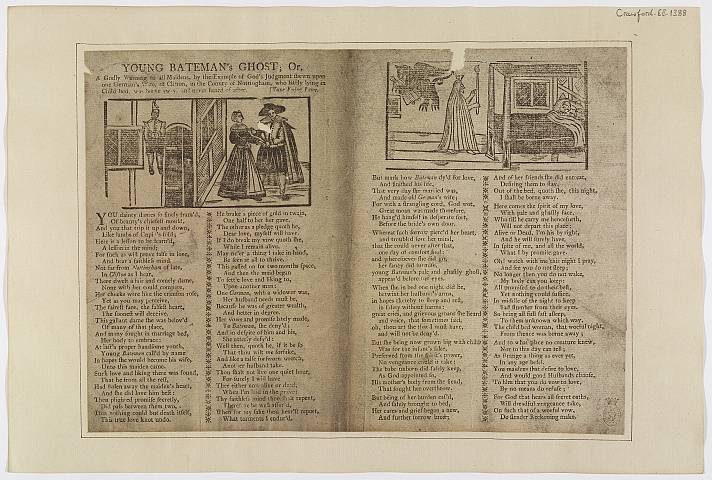 Crawford.EB.1388
YOUNG BATEMAN's GHOST; Or,
A Godly Warning to all Maidens, by the Example of God's Judgment shewn upon
one German's Wife, of Clifton, in the County of Nottingham, who lying in
Child bed, was borne away, and never heard of after.
YOU dainty dames so finely fram'd,
Of beauty's chiefest mould,
And you that trip it up and down,
Like lambs of Cupid's fold,
Here is a lesson to be learn'd,
A lesson in the mind;
For such as will prove false in love,
And bear a faithless mind.
Not far from Nottingham of late,
In Clifton as I hear,
There dwelt a fair and comely dame,
For beauty
Her cheeks were like the crimson rose,
Yet as you may perceive,
The fairest face, the falsest heart,
The soonest will deceive.
This gallant dame she was belov'd
Of many of that place,
And many sought in marriage bed,
Her body to embrace:
At last a proper handsome youth,
Young Bateman call'd by name
In hopes he would become his wife,
Unto this maiden came.
Such love and liking there was found,
That he from all the rest,
Had stolen away the maiden's heart,
And she did love him best:
Then plighted promise secretly,
Did pass between them two,
That nothing could but death itself,
This true love knot undo.
He brake a piece of gold in twain,
One half to her he gave
The other as a pledge quoth he,
Dear love, myself will have.
If I do break my vow quoth she,
While I remain alive,
May ne'er a thing I take in hand,
Be seen at all to thrive.
This passed on for two months space,
And then the maid began
To settle love and liking to,
Upon another man:
One German, who a widower was,
Her husband needs must be,
Because he was of greater wealth,
And better in degree.
Her vows and promise lately made,
To Bateman, she deny'd;
And in despite of him and his,
She utterly defy'd:
Well then, quoth he, if it be so
That thou wilt me forsake,
And like a false forsworn wretch,
Another husband take.
Thou shalt not live one quiet hour,
For surely I will have
Thee either now alive or dead,
When I'm laid in the grave.
Thy faithless mind thou shalt repent,
Therefore be well assur'd,
When for my sake thou hear'st report,
What torments I endur'd.
But mark how Bateman dy'd for love,
And finished his life,
That very day she married was,
And made old German's wife;
For with a strangling cord, God wot,
Great moan was made therefore,
He hang'd himself in desperate sort,
Before the bride's own door.
Whereat such sorrow pierc'd her heart,
and troubled her mind,
that she could never after that,
one day of comfort find:
and wheresoever she did go,
her fancy did surmise,
young Bateman's pale and ghastly ghost,
appear'd before her eyes.
When she in bed one night did lie,
betwixt her husband's arms
in hopes thereby to sleep and rest,
in safety without harms:
great cries, and grievous groans she heard
and voice, that sometimes said,
oh, thou art she that I must have,
and will not be deny'd.
But she being now grown big with child
Was for the infant's sake,
Preserved from the spirit's power,
No vengeance could it take:
The babe unborn did safely keep,
As God appointed so,
His mother's body from the fiend,
That sought her overthrow.
But being of her burden eas'd,
And safely brought to bed,
Her cares and grief began a new,
And further sorrow bred;
And of her friends she did entreat,
Desiring them to stay,
Out of the bed, quoth she, this night,
I shall be borne away.
Here comes the spirit of my love,
With pale and ghastly face,
Who till he carry me henceforth,
Will not depart this place:
Alive or Dead, I'm his by right,
And he will surely have,
In spite of me, and all the world,
What I by promise gave.
Oh! watch with me this night I pray,
And see you do not sleep;
No longer then you do not wake,
My body can you keep:
All promised to do their best,
Yet nothing could suffice,
In middle of the night to keep
Sad slumber from their eyes.
So being all full fast asleep,
To them unknown which way,
The child bed woman, that woeful night,
From thence was borne away;
And to what place no creature knew,
Nor to this day can tell;
As strange a thing as ever yet,
In any age befell.
You maidens that desire to love,
And would good Husbands chuse,
To him that you do vow to love,
By no means do refuse;
For God that hears all secret oaths,
Will dreadful vengeance take,
On such that of a woeful vow,
Do slender Reckoning make.